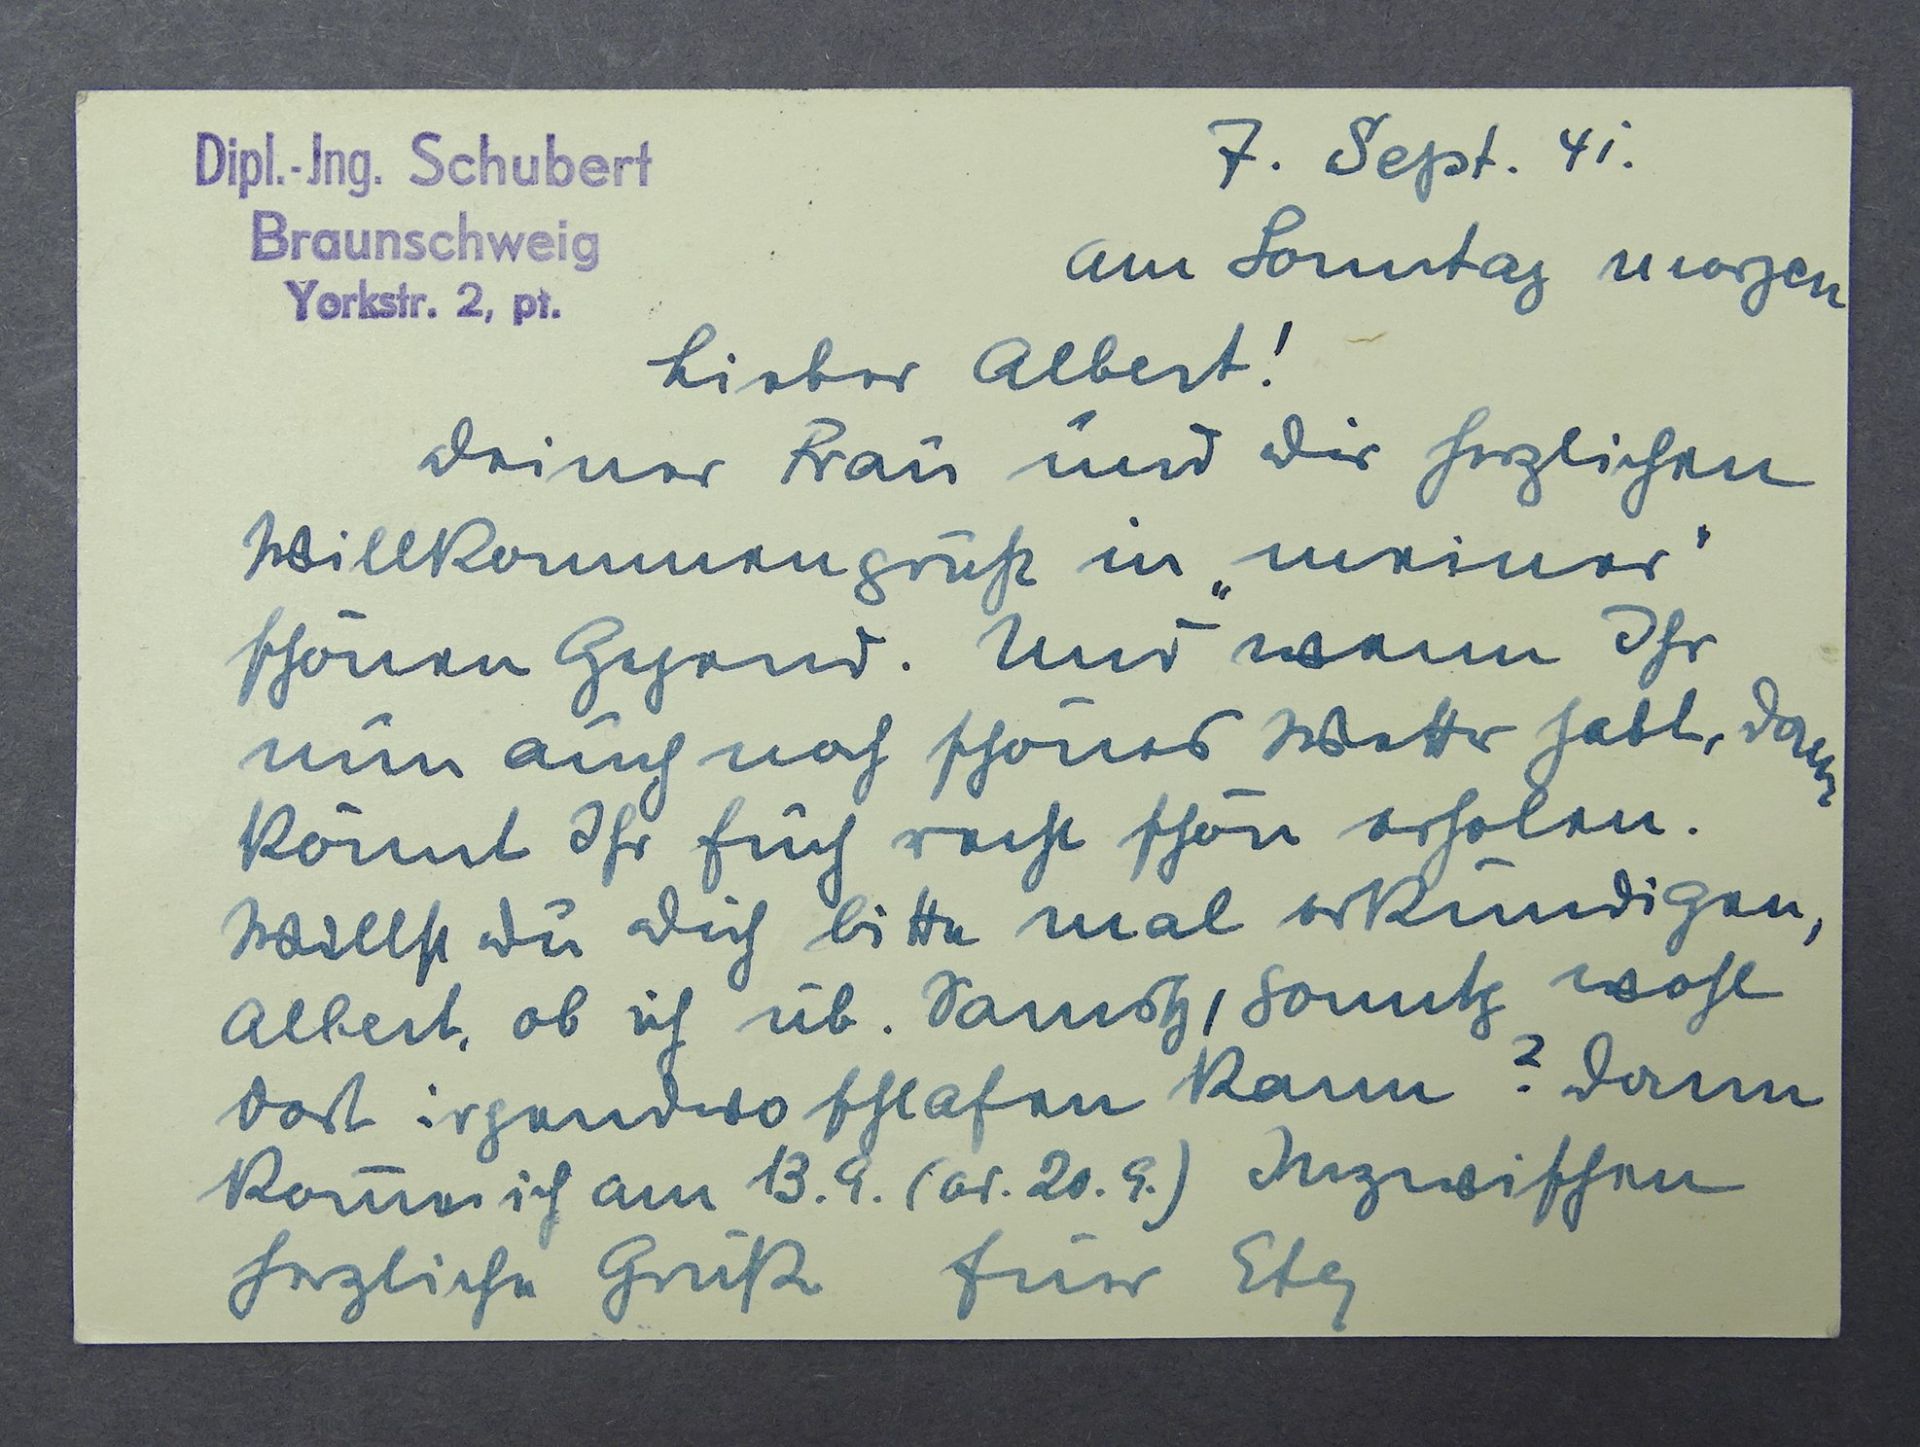 Dipl.-Jng. Schubert
Braunschweig
Yorkstr. 2, pt.
7. Sept. 41.
am Sonntag morgen
Lieber Albert!
Deiner Frau und Dir herzlichen
Willkommengruß in „meiner"
schönen Gegend. Und wenn Ihr
nun auch noch schönes Wetter habt, dann
könnt Ihr Euch recht schön erholen.
Willst Du Dich bitte mal erkundigen,
Albert, ob ich üb. Samstg, Sonntg wohl
dort irgendwo schlafen kann? Dann
komme ich am 13.9. (od. 20.9.) Inzwischen
herzliche Grüße Euer